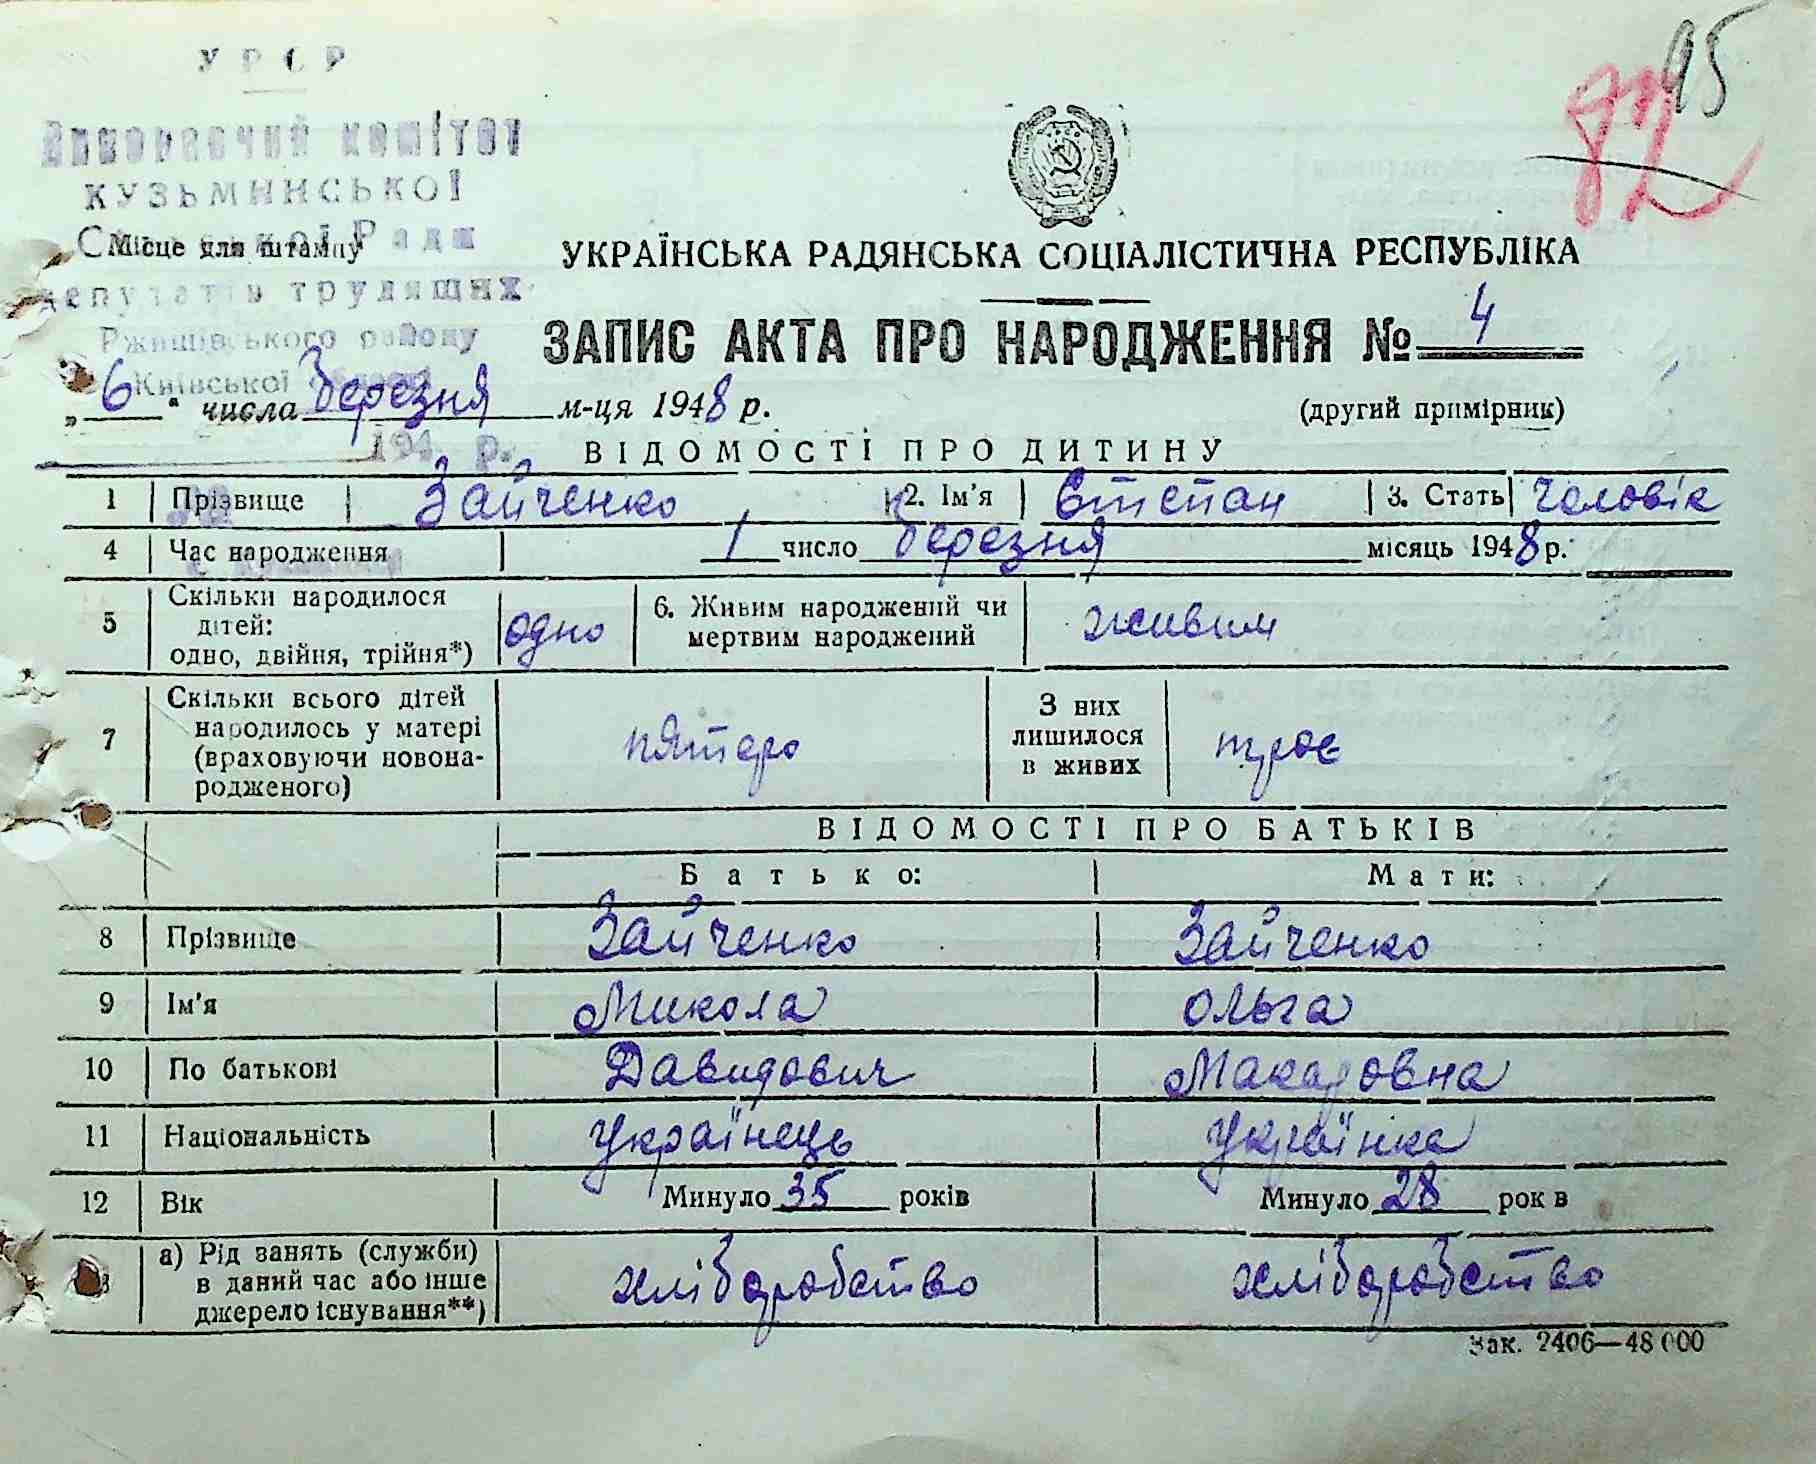 УРСР
95
82
Виконавчий комітет
КУЗЬМИНСЬКОЇ
Сільської Ради
Місце для штампу
депутатів трудящих
Ржищівського району
Київської області
194 р.
УКРАЇНСЬКА РАДЯНСЬКА СОЦІАЛІСТИЧНА РЕСПУБЛІКА
ЗАПИС АКТА ПРО НАРОДЖЕННЯ № 4
„6“ числа березня м-ця 1948 р.
(другий примірник)
ВІДОМОСТІ ПРО ДИТИНУ
1 Прізвище Зайченко 2. Ім'я Степан 3. Стать чоловік
4 Час народження 1 число березня місяць 1948 р.
5 Скільки народилося дітей: одно, двійня, трійня*) одно 6. Живим народжений чи мертвим народжений живим
7 Скільки всього дітей народилось у матері (враховуючи новонародженого) пятеро З них лишилося в живих троє
ВІДОМОСТІ ПРО БАТЬКІВ
Батько: Мати:
8 Прізвище Зайченко Зайченко
9 Ім'я Микола Ольга
10 По батькові Давидович Макаровна
11 Національність Українець Українка
12 Вік Минуло 35 років Минуло 28 рок в
а) Рід занять (служби) в даний час або інше джерело існування**) хліборобство хліборобство
Зак. 2406—48000